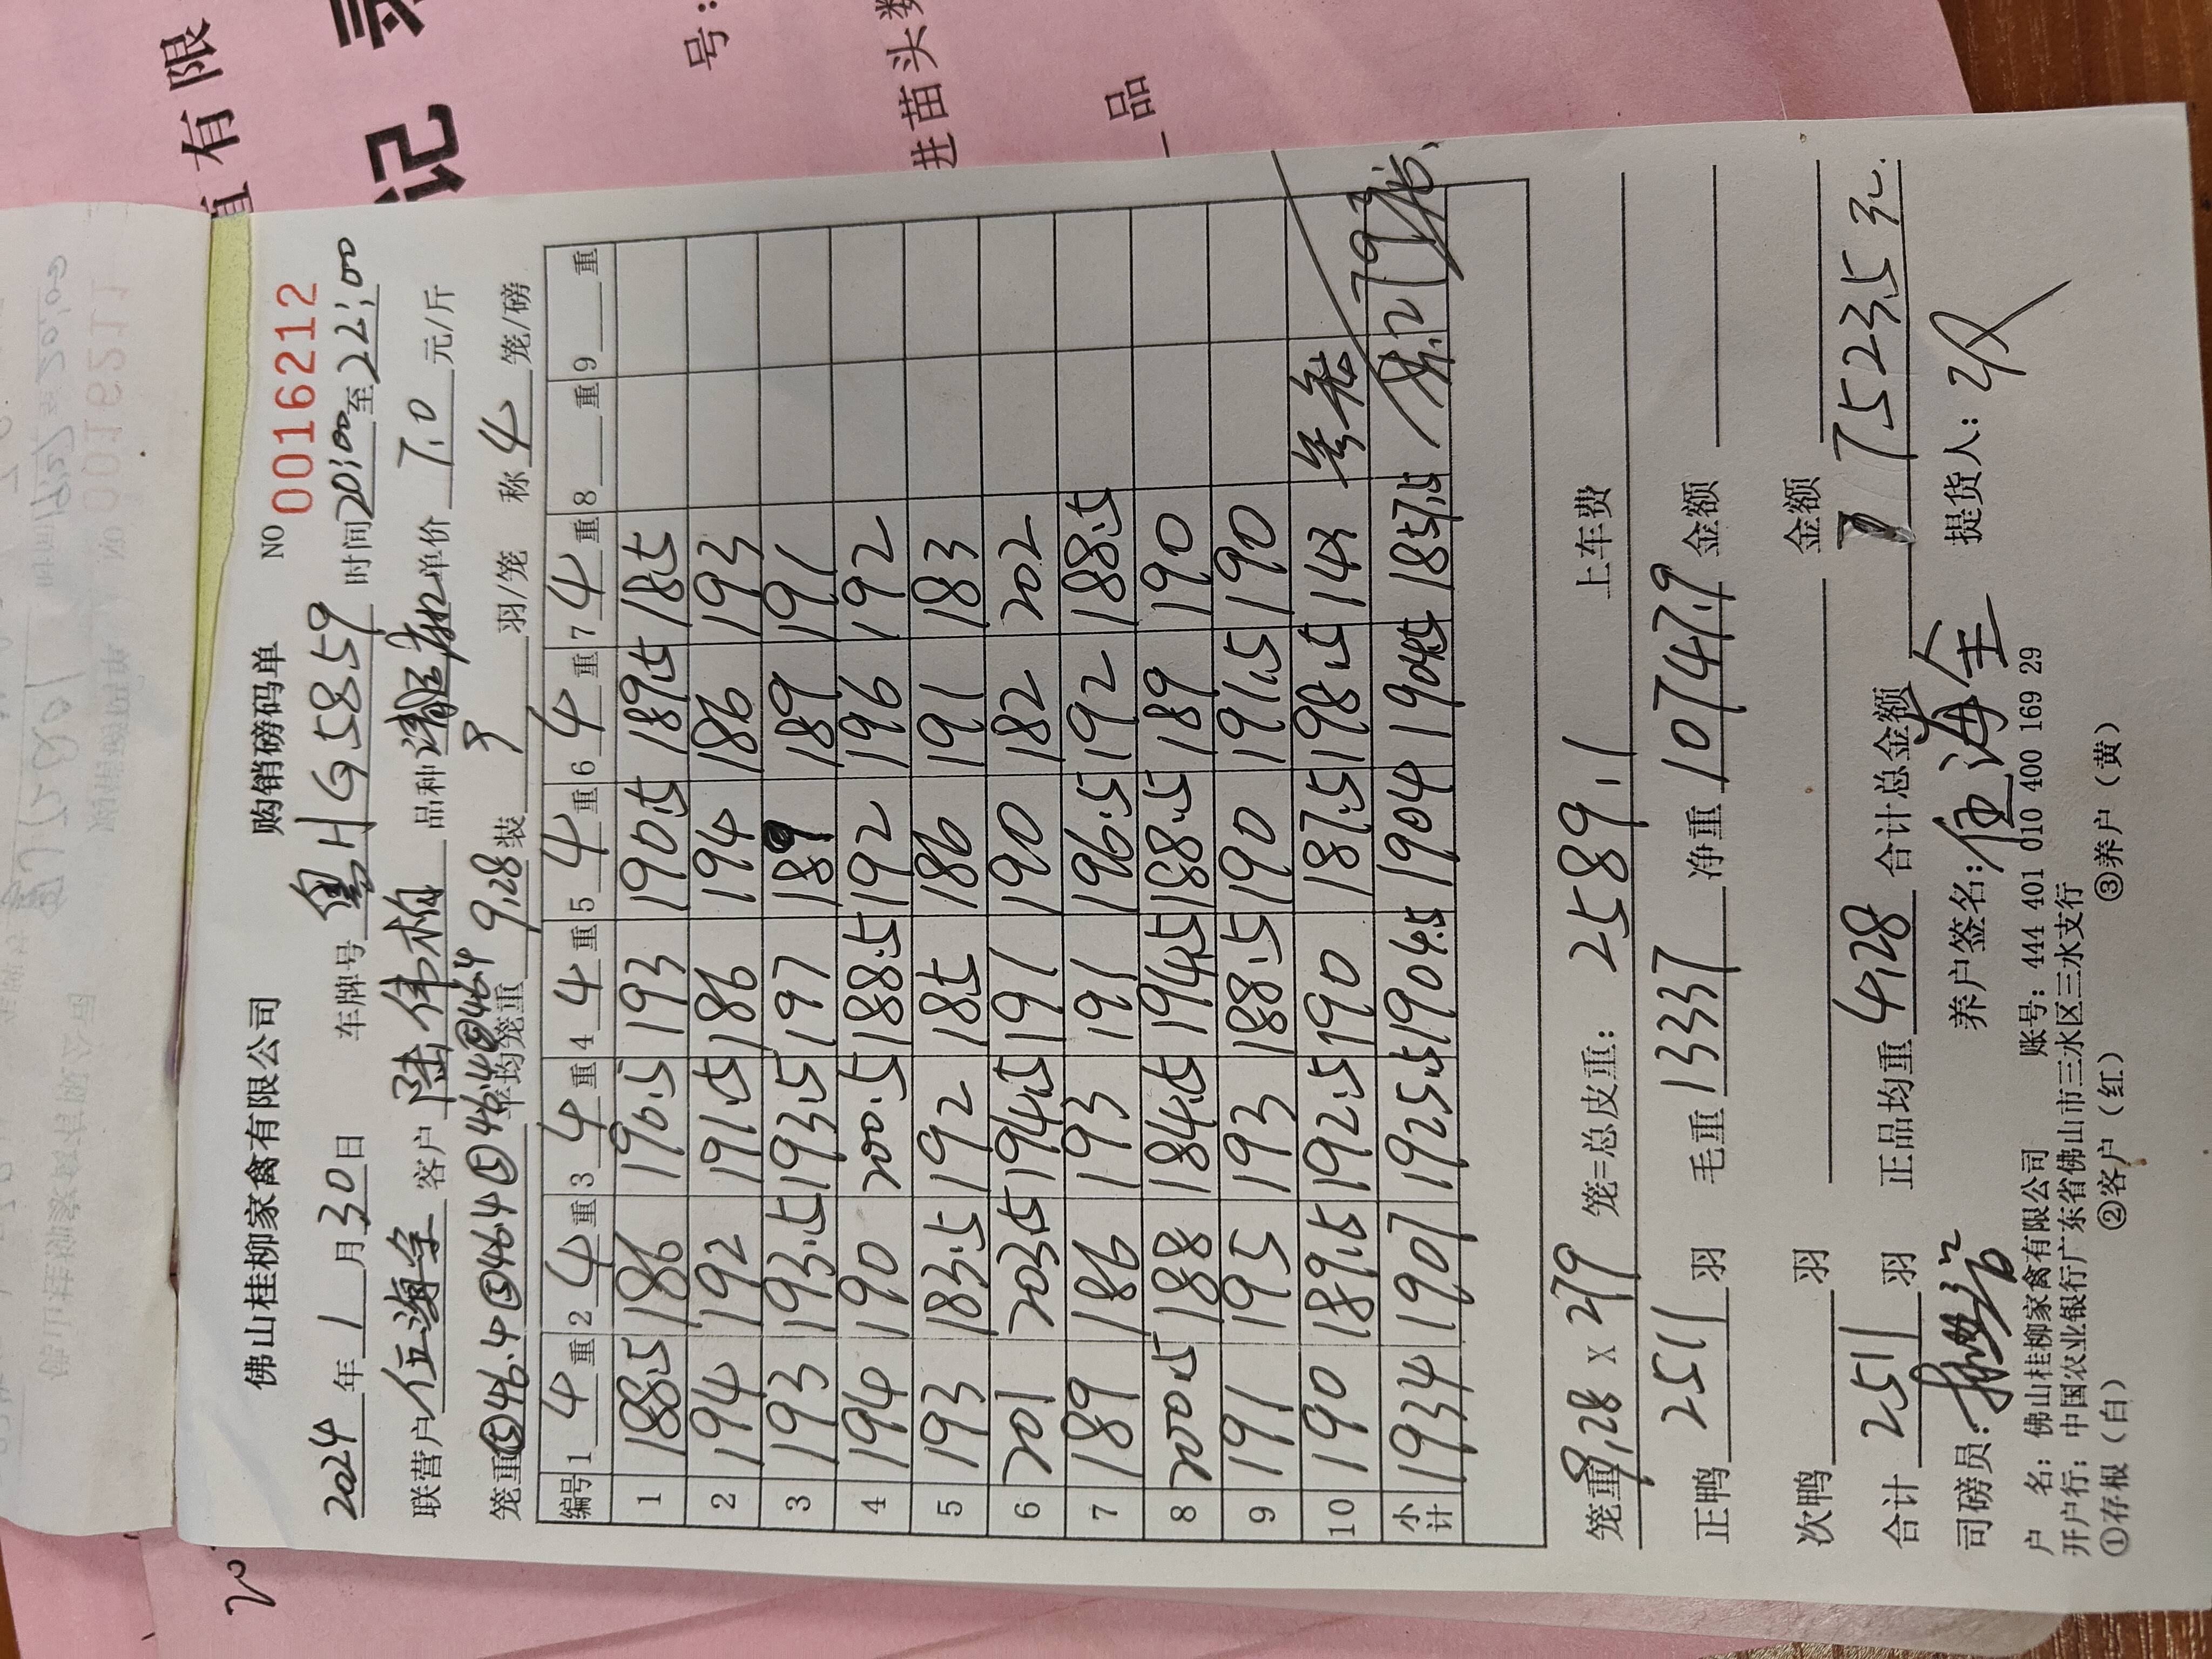 直有限
记录
号：
进苗头数
品
佛山桂柳家禽有限公司 购销磅码单 NO 0016212
2024年1月30日 车牌号 粤HG5859 时间20:00至22:00
联营户 伍海全 客户 陆伟柏 品种 单价 7.0 元/斤
笼重⑤46.4⑤46.4⑤46.4⑤46.4 平均笼重 9.28 装 9 羽/笼 称 4 笼/磅
编号 1 4 重 2 4 重 3 4 重 4 4 重 5 4 重 6 4 重 7 4 重 8 重 9 重
1 188.5 186 190.5 193 190.5 189.5 185
2 194 192 191.5 186 194 186 193
3 193 193.5 193.5 197 189 189 191
4 194 190 200.5 188.5 192 196 192
5 193 183.5 192 185 186 191 183
6 201 203.5 194.5 191 190 182 202
7 189 186 193 191 196.5 192 188.5
8 200.5 188 184.5 194.5 188.5 189 190
9 191 195 193 188.5 190 191.5 190
10 190 189.5 192.5 190 187.5 198.5 143
小计 1934 1907 1925.5 1904.5 1904 1904.5 1857.5 共279
笼重9.28 X 279 笼=总皮重：2589.1 上车费
正鸭 2511 羽 毛重 13337 净重 10747.9 金额
次鸭 羽 金额
合计 2511 羽 正品均重 4.28 合计总金额 75235元
司磅员： 养户签名：伍海全 提货人：
户 名：佛山桂柳家禽有限公司 账号：444 401 010 400 169 29
开户行：中国农业银行广东省佛山市三水区三水支行
①存根（白） ②客户（红） ③养户（黄）